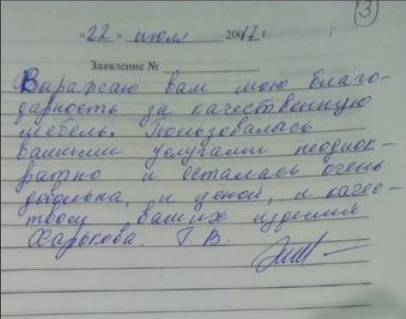 3
«22» июля 20017 г.
Заявление №
Выражаю вам мою благо-
дарность за качественную
мебель. Пользовалась
вашими услугами неоднок-
ратно и осталась очень
довольна, и ценой, и качес-
твом ваших изделий
Харькова. Г. В.